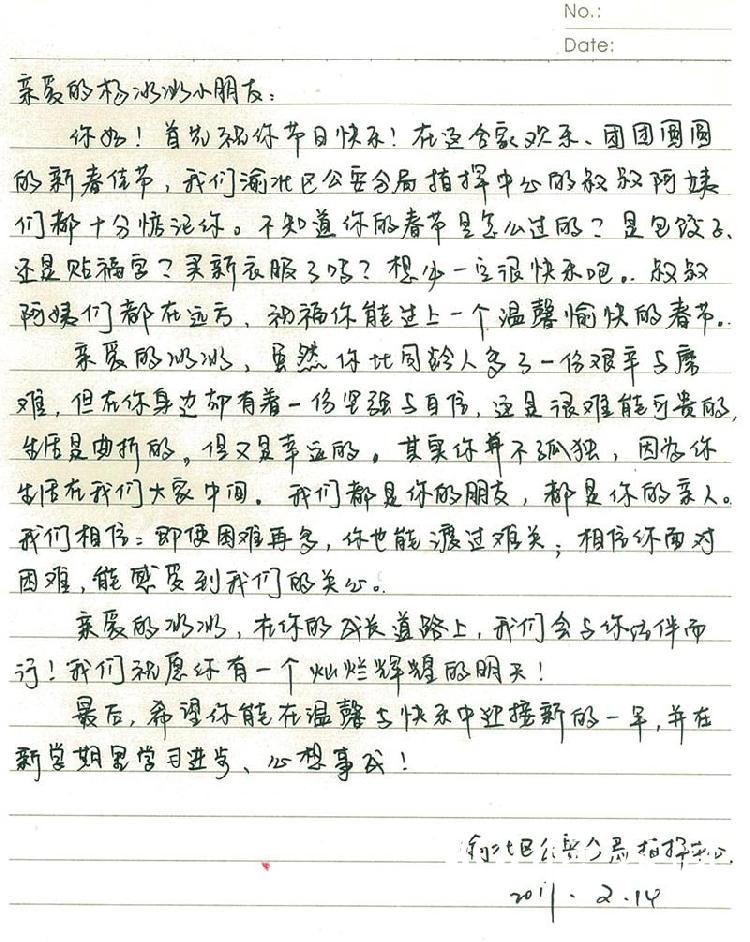 No.:
Date:
亲爱的杨冰冰小朋友：
你好！首先祝你节日快乐！在这合家欢乐、团团圆圆
的新春佳节，我们渝北区公安分局指挥中心的叔叔阿姨
们都十分惦记你。不知道你的春节是怎么过的？是包饺子、
还是贴福字？买新衣服了吗？想必一定很快乐吧。叔叔
阿姨们都在远方，祝福你能过上一个温馨愉快的春节。
亲爱的冰冰，虽然你比同龄人多了一份艰辛与磨
难，但在你身边却有着一份坚强与自信，这是很难能可贵的，
生活是曲折的，但又是幸运的。其实你并不孤独，因为你
生活在我们大家中间。我们都是你的朋友，都是你的亲人。
我们相信：即使困难再多，你也能渡过难关；相信你面对
困难，能感受到我们的关心。
亲爱的冰冰，在你的成长道路上，我们会与你结伴而
行！我们祝愿你有一个灿烂辉煌的明天！
最后，希望你能在温馨与快乐中迎接新的一年，并在
新学期里学习进步、心想事成！
渝北区公安分局指挥中心
2011.2.14